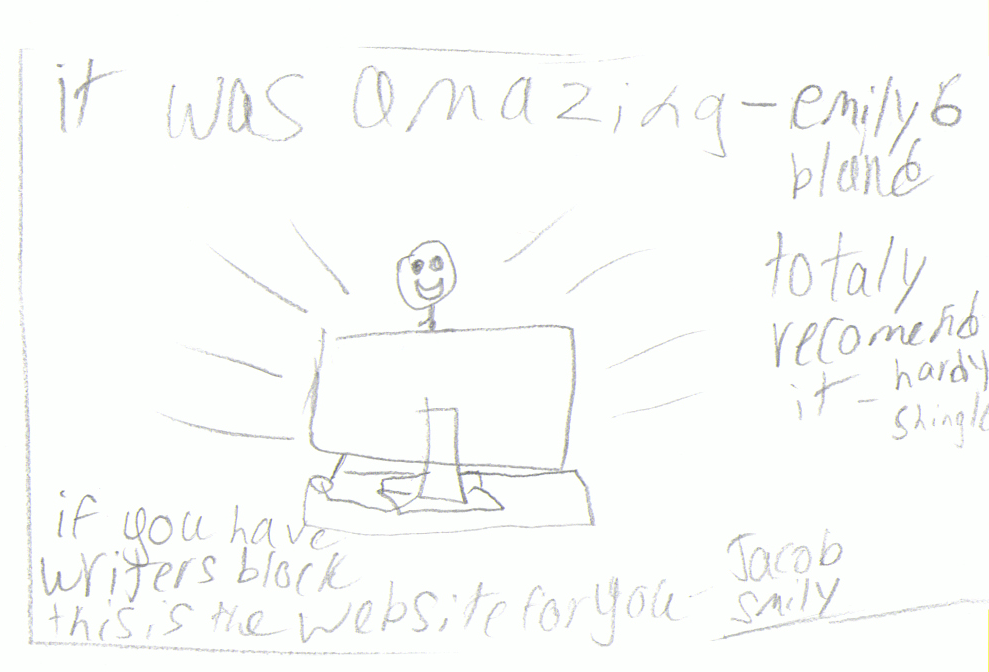 it was amazing - emily b
bland
totaly
recomend
it - hardy
shingle
if you have
writers block
this is the website for you - Jacob
smily